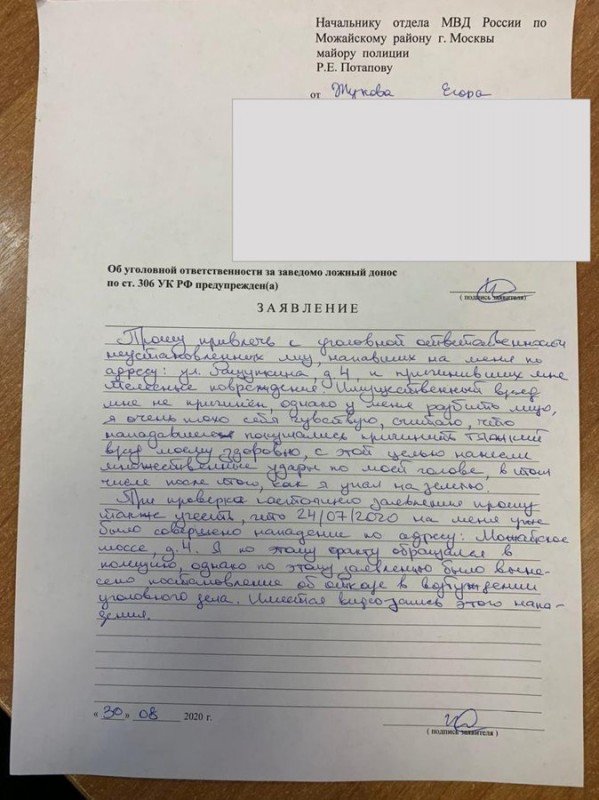 Начальнику отдела МВД России по
Можайскому району г. Москвы
майору полиции
Р.Е. Потапову
от Жукова Егора
Об уголовной ответственности за заведомо ложный донос
по ст. 306 УК РФ предупрежден(а)
( подпись заявителя)
ЗАЯВЛЕНИЕ
Прошу привлечь к уголовной ответственности
неустановленных лиц, напавших на меня по
адресу: ул. Гащункина, д. 4, и причинивших мне
телесные повреждения. Имущественный вред
мне не причинён, однако у меня разбито лицо,
я очень плохо себя чувствую, считаю, что
нападавшие покушались причинить тяжкий
вред моему здоровью, с этой целью нанесли
множественные удары по моей голове, в том
числе после того, как я упал на землю.
При проверке настоящего заявления прошу
также учесть, что 24/07/2020 на меня уже
было совершено нападение по адресу: Можайское
шоссе, д. 4. Я по этому факту обращался в
полицию, однако по этому заявлению было выне-
сено постановление об отказе в возбуждении
уголовного дела. Имеется видеозапись этого напа-
дения.
« 30 » 08 2020 г.
( подпись заявителя )